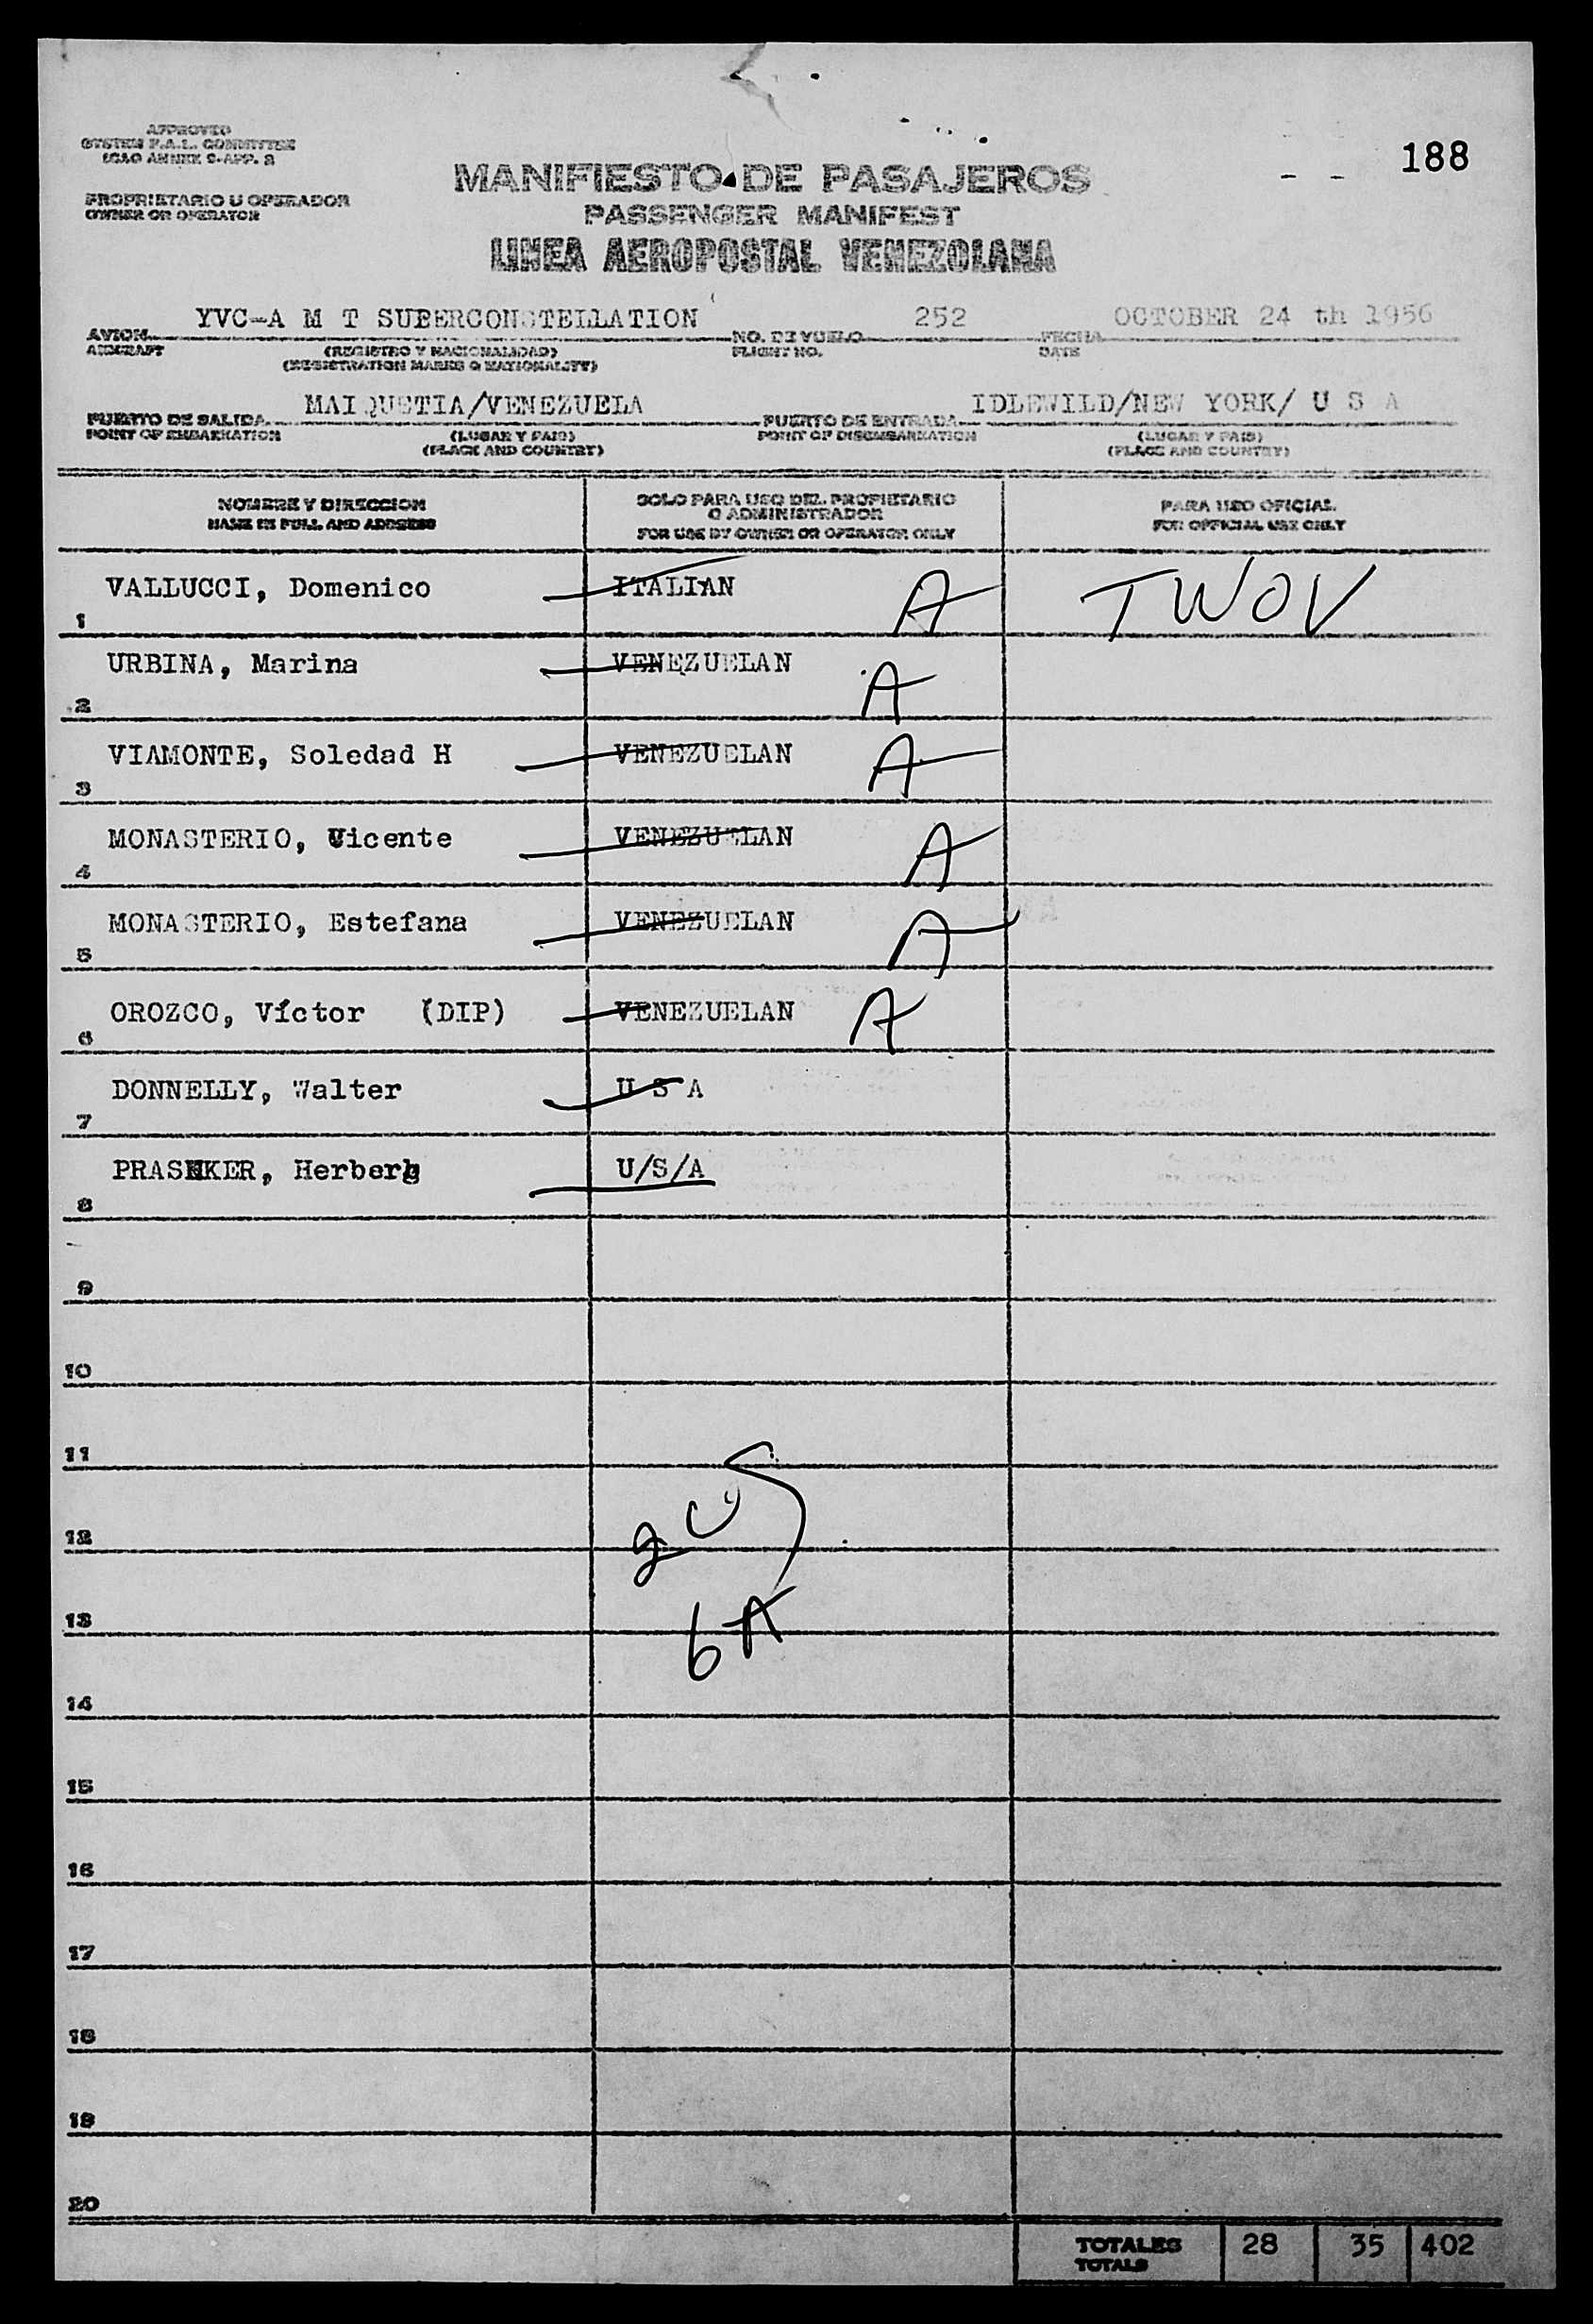 APPROVED
SYSTEM F.A.L. COMMITTEE
ICAO ANNEX 9-APP. 2
188
MANIFIESTO DE PASAJEROS
PROPRIETARIO U OPERADOR
OWNER OR OPERATOR
PASSENGER MANIFEST
LINEA AEROPOSTAL VENEZOLANA
AVION YVC-A M T SUPERCONSTELLATION NO. DE VUELO 252 FECHA OCTOBER 24 th 1956
AIRCRAFT (REGISTRO Y NACIONALIDAD) FLIGHT NO. DATE
(REGISTRATION MARKS & NATIONALITY)
PUERTO DE SALIDA MAIQUETIA/VENEZUELA PUERTO DE ENTRADA IDLEWILD/NEW YORK/ U S A
POINT OF EMBARKATION (LUGAR Y PAIS) POINT OF DISEMBARKATION (LUGAR Y PAIS)
(PLACE AND COUNTRY) (PLACE AND COUNTRY)
NOMBRE Y DIRECCION SOLO PARA USO DEL PROPIETARIO PARA USO OFICIAL
O ADMINISTRADOR
NAME IN FULL AND ADDRESS FOR USE BY OWNER OR OPERATOR ONLY FOR OFFICIAL USE ONLY
1 VALLUCCI, Domenico ITALIAN A TWOV
2 URBINA, Marina VENEZUELAN A
3 VIAMONTE, Soledad H VENEZUELAN A
4 MONASTERIO, Vicente VENEZUELAN A
5 MONASTERIO, Estefana VENEZUELAN A
6 OROZCO, Víctor (DIP) VENEZUELAN A
7 DONNELLY, Walter U S A
8 PRASHKER, Herbert U/S/A
9
10
11
12 2 US
13 6A
14
15
16
17
18
19
20
TOTALES 28 35 402
TOTALS